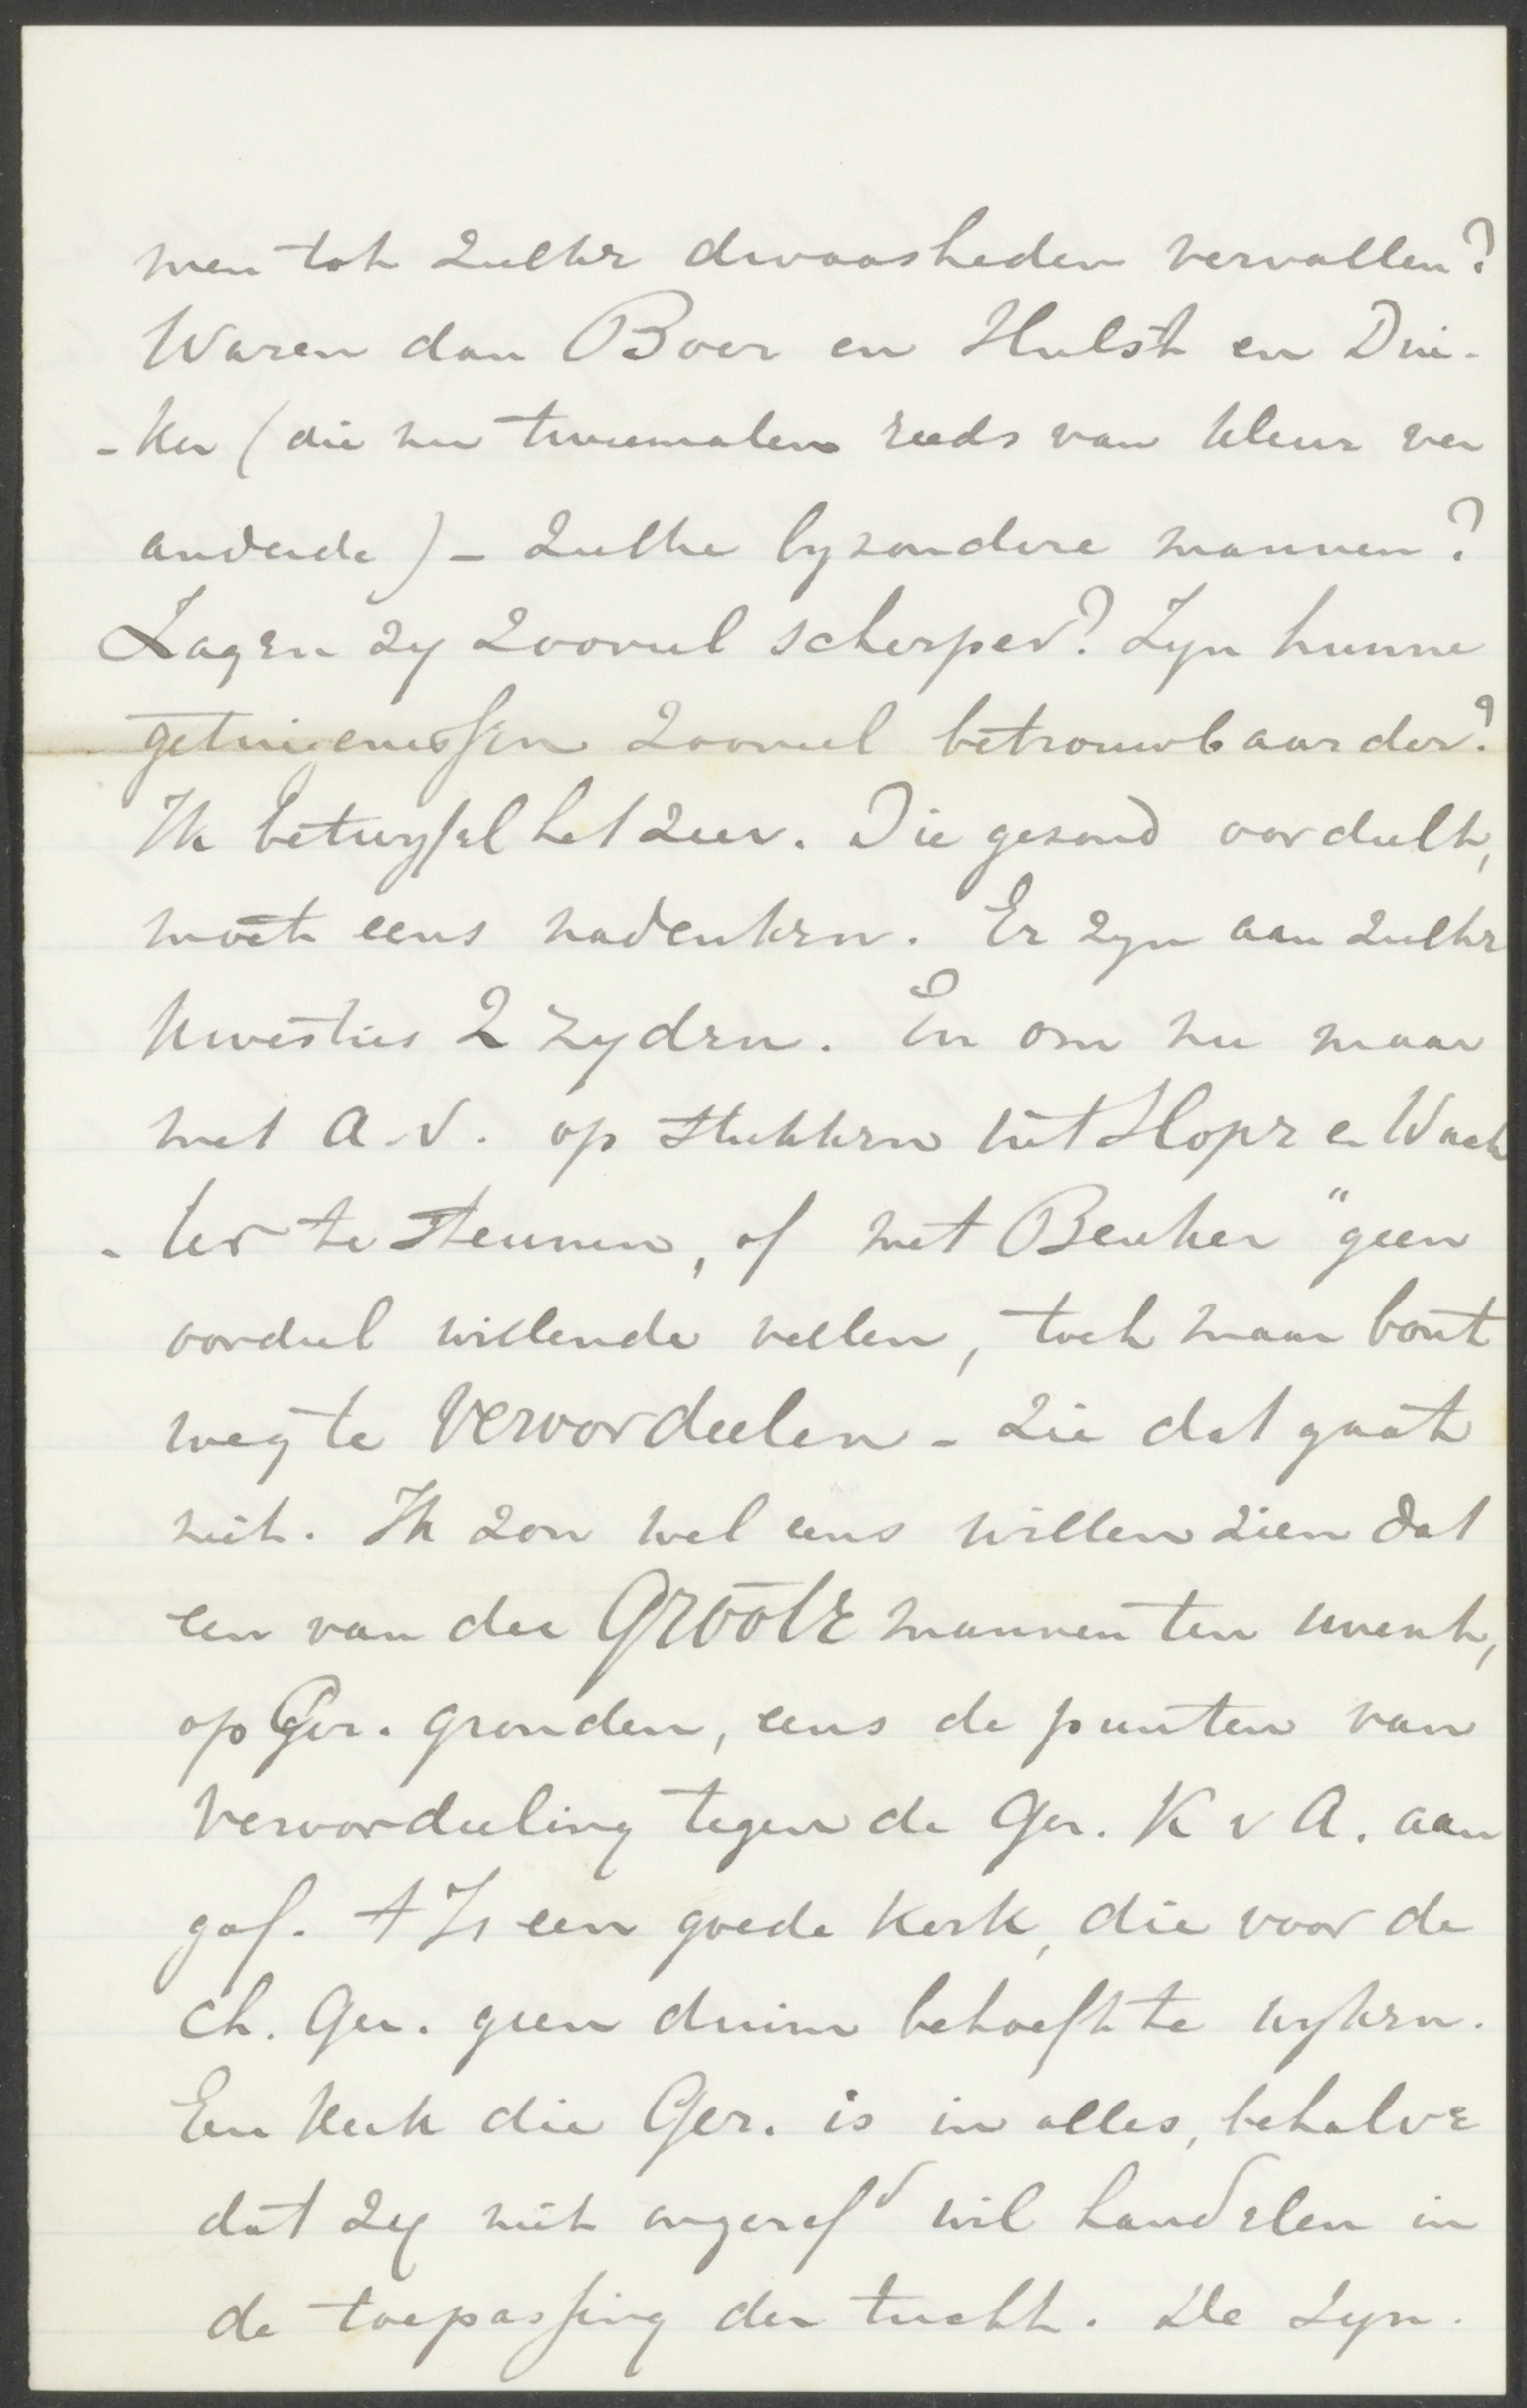 men toch zulke dwaasheden vervallen?
Waren dan Boer en Hulst en Dui-
-ker (die nu tweemalen reeds van kleur ver
anderde) - zulke byzondere mannen?
Zagen zy zooveel scherper? Zyn hunne
getuigenissen zooveel betrouwbaarder?
Ik betwyfel het zeer. Die gezond oordeelt,
moet eens nadenken. Er zyn aan zulke
kwesties 2 zyden. En om nu maar
met A.V. op stukken uit Hope en Wach
-ter te steunen, of met Beuker "geen
oordeel willende vellen, toch maar bout
weg te veroordeelen - zie dat gaat
niet. Ik zou wel eens willen zien dat
een van die groote mannen ten uwent,
op Ger. gronden, eens de punten van
veroordeeling tegen de Ger. K v A. aan
gaf. t Is een goede kerk, die voor de
Ch. Ger. geen duim behoeft te wyken.
Een kerk die Ger. is in alles, behalve
dat zy niet ongerefd wil handelen in
de toepassing der tucht. De Zyn.